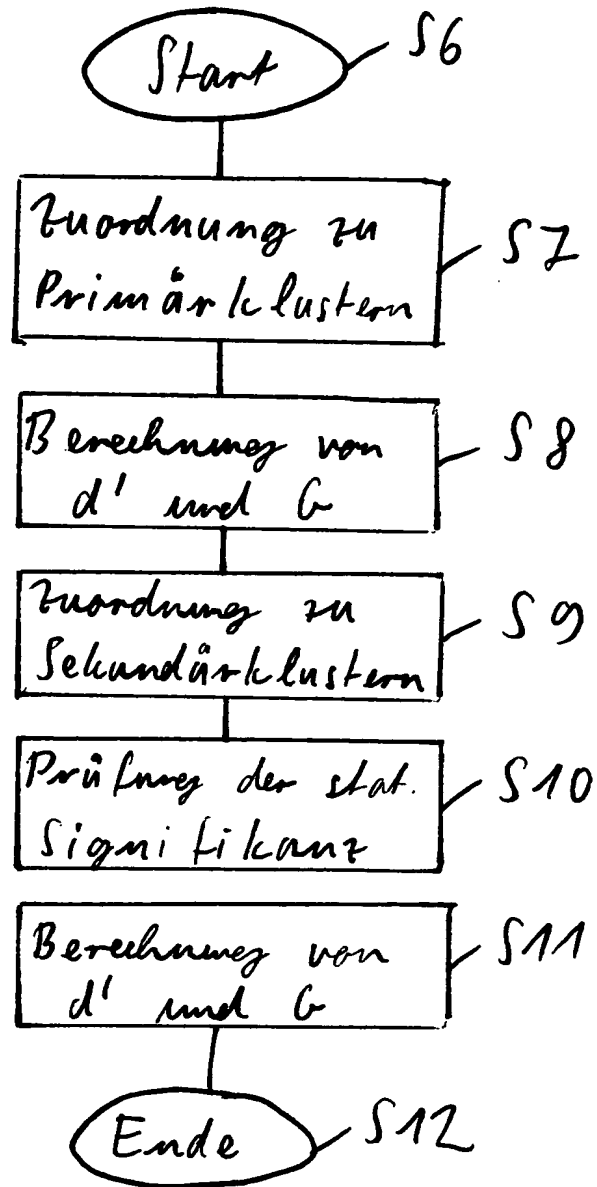 Start S6
Zuordnung zu
Primärklustern S7
Berechnung von S8
d' und G
Zuordnung zu S9
Sekundärklustern
Prüfung der stat. S10
Signifikanz
Berechnung von S11
d' und G
Ende S12